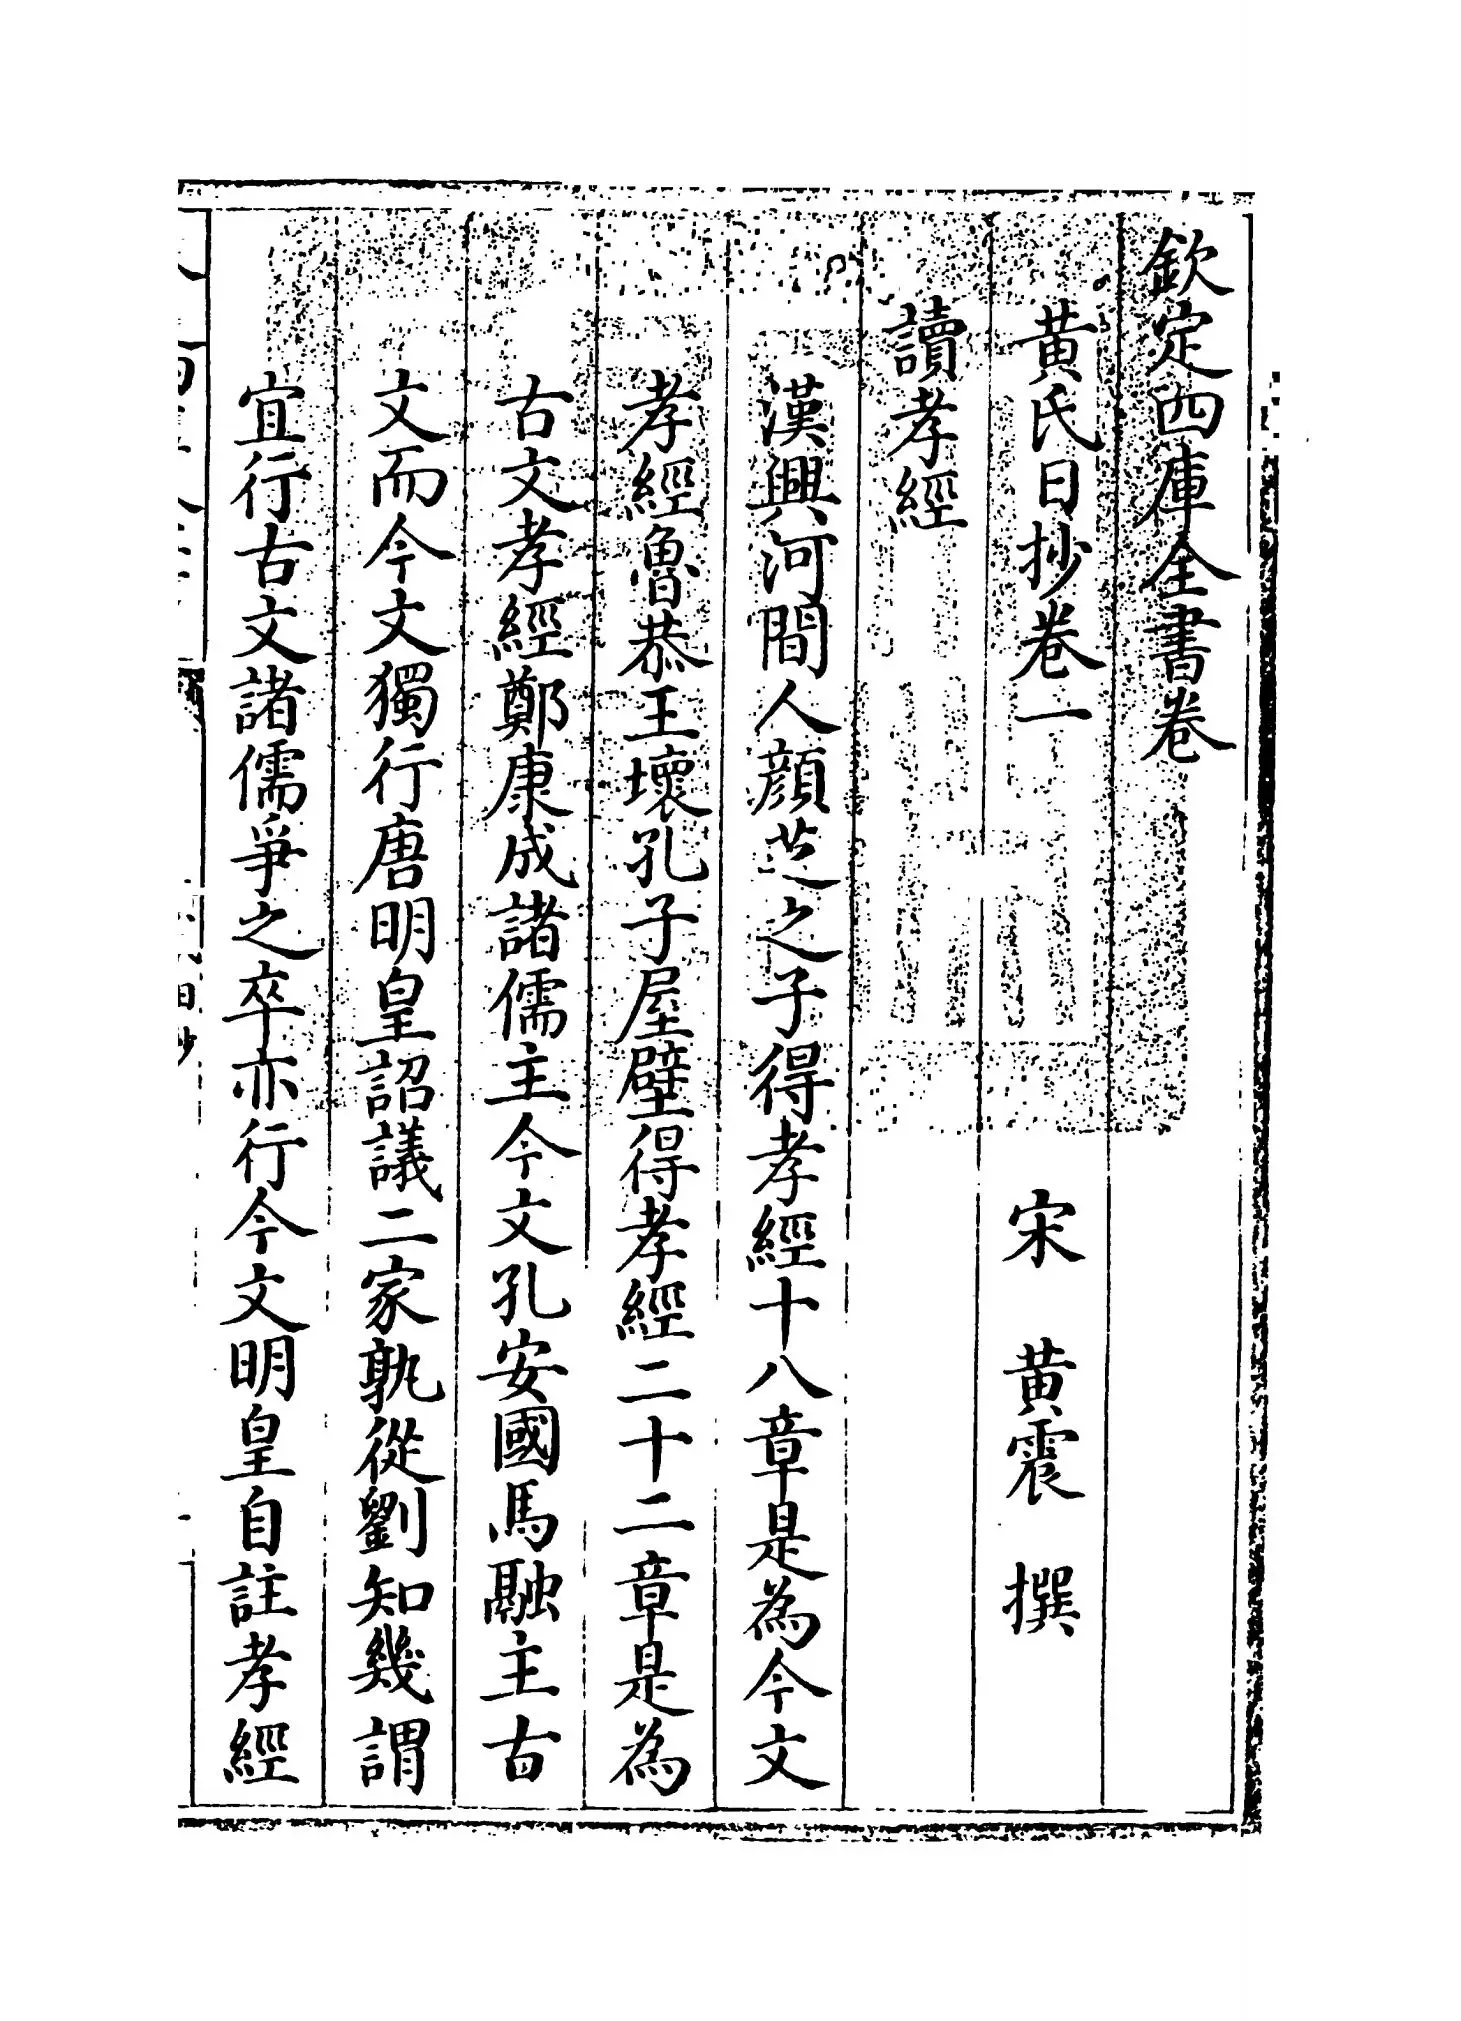 欽定四庫全書卷
黄氏日抄卷一 宋 黄震 撰
讀孝經
漢興河間人顔芝之子得孝經十八章是為今文
孝經魯恭王壞孔子屋壁得孝經二十二章是為
古文孝經鄭康成諸儒主今文孔安國馬融主古
文而今文獨行唐明皇詔議二家孰從劉知幾謂
宜行古文諸儒爭之卒亦行今文明皇自註孝經